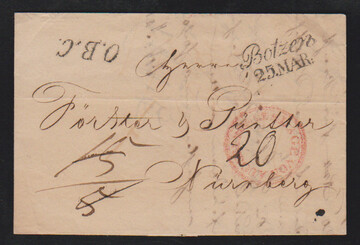 O.B.C.
Botzen
25.MAR.
Herren
Förster &
20
15
8
Nürnberg